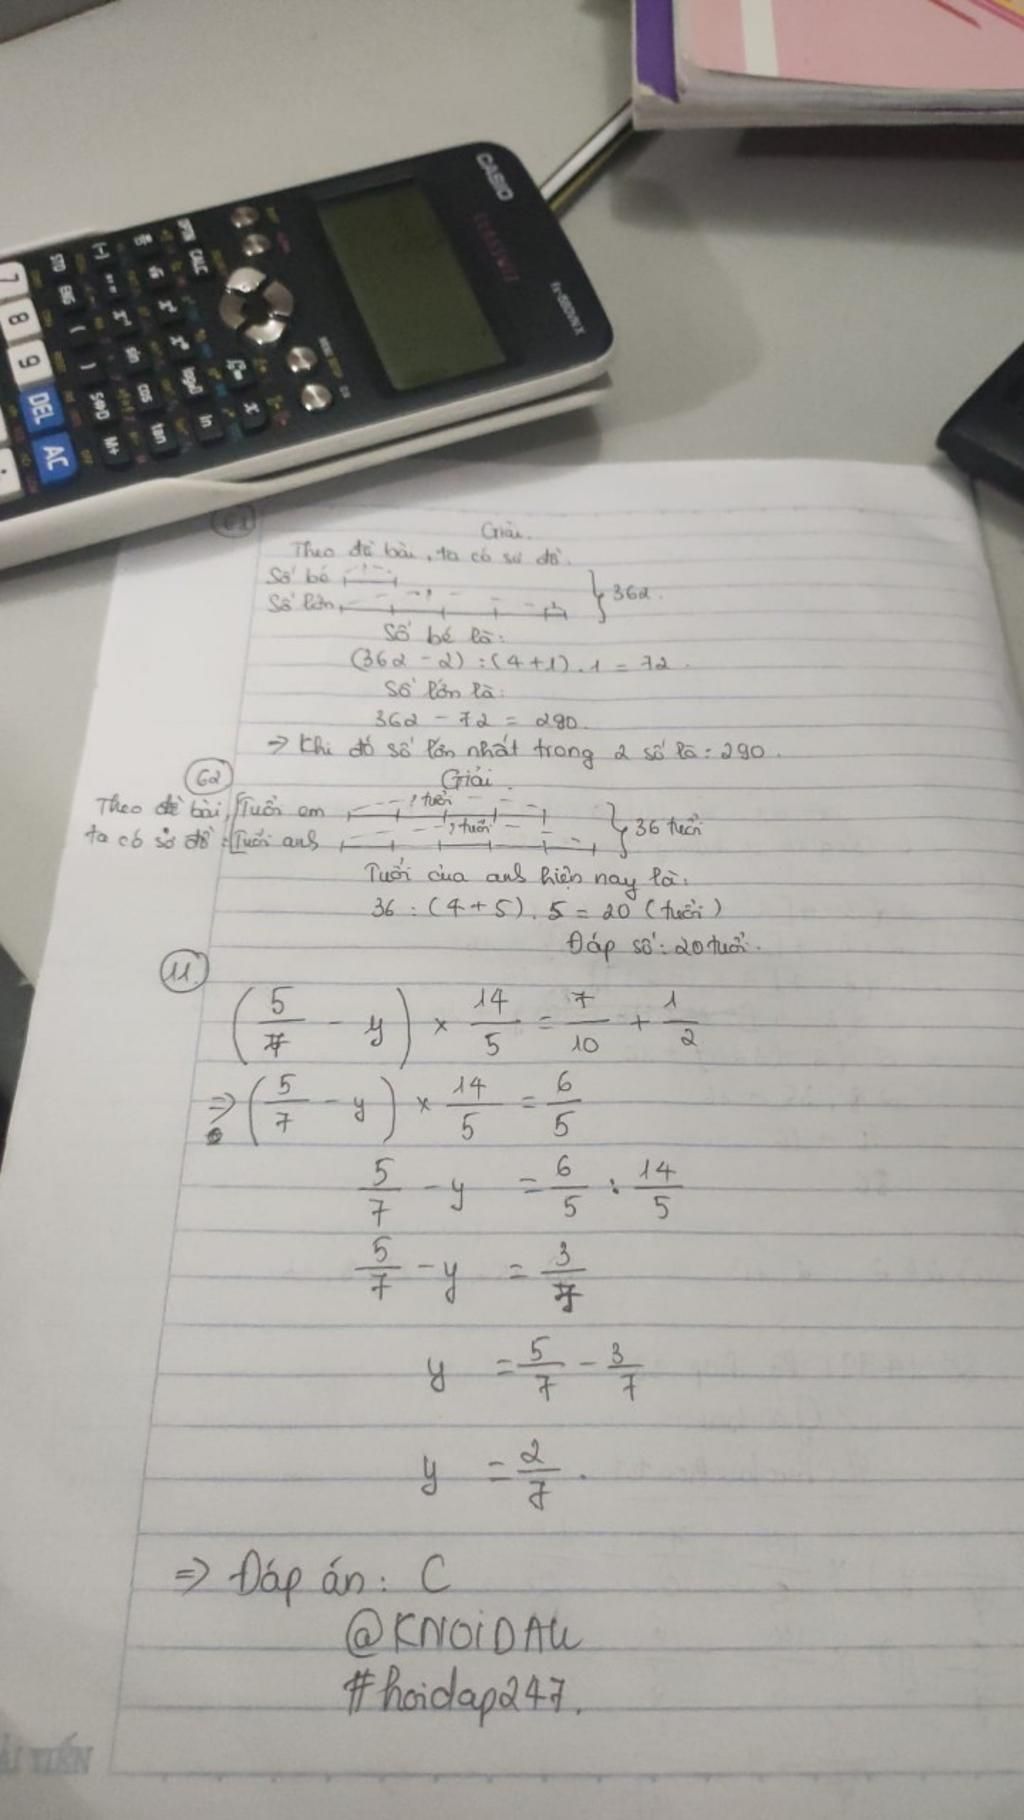 CASIO
CLASSWIZ
fx-580VN X
OPTN CALC
STO ENG ( ) S⇔D M+
sin cos tan
ln
7 8 9 DEL AC
61
Giải.
Theo đề bài, ta có sơ đồ.
Số bé
Số lớn
362.
Số bé là:
(362 - 2) : (4+1) . 1 = 72.
Số lớn là:
362 - 72 = 290.
⇒ Khi đó số lớn nhất trong 2 số là: 290.
62
Giải.
Theo đề bài, Tuổi em ? tuổi
ta có sơ đồ: Tuổi anh ? tuổi 36 tuổi
Tuổi của anh hiện nay là:
36 : (4+5) . 5 = 20 (tuổi)
Đáp số: 20 tuổi.
11.
(5/7 - y) × 14/5 = 7/10 + 1/2
⇒ (5/7 - y) × 14/5 = 6/5
5/7 - y = 6/5 : 14/5
5/7 - y = 3/7
y = 5/7 - 3/7
y = 2/7.
⇒ Đáp án: C
@KNOiDAU
#hoidap247.